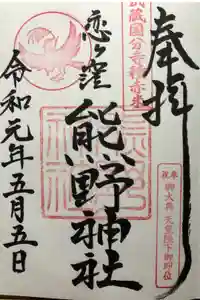 奉拝
武蔵国分寺種赤米
奉祝 御大典 天皇陛下御即位
恋ヶ窪
熊野神社
令和元年五月五日